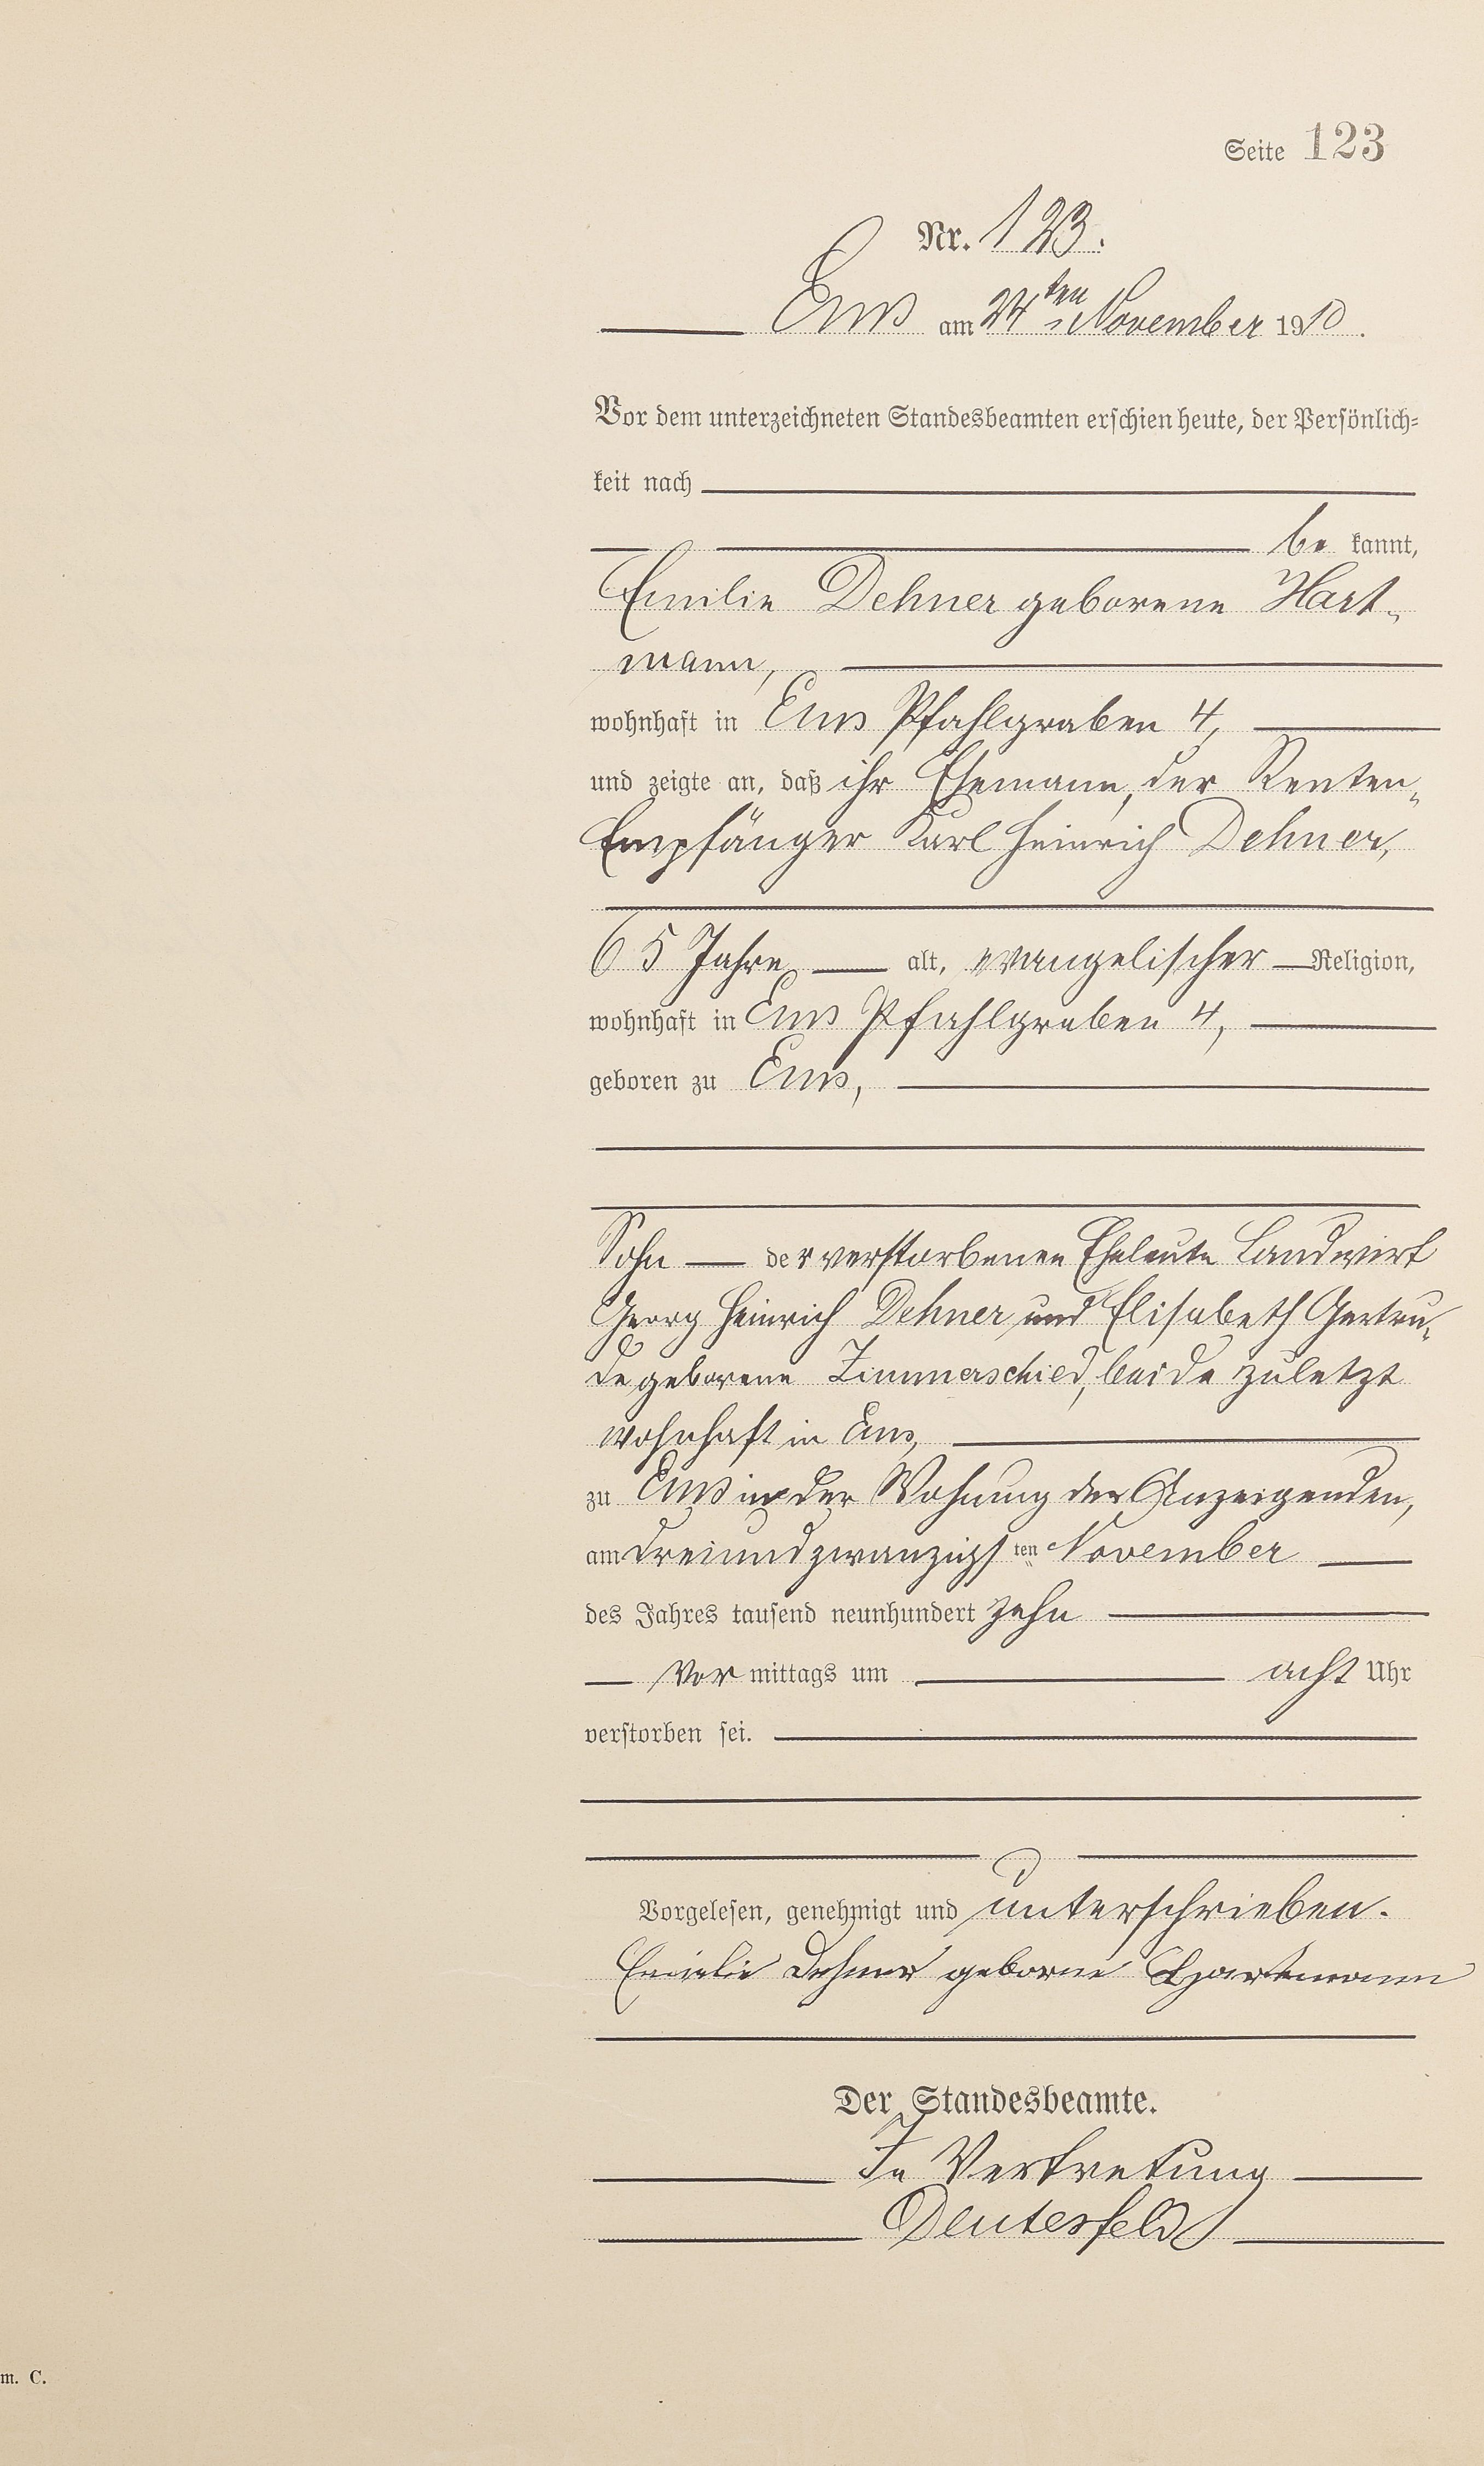 Seite 123
Nr. 123.
Ems am 24ten November 1910.
Vor dem unterzeichneten Standesbeamten erschien heute, der Persönlich-
keit nach
be kannt,
Emilie Dehner geborene Hart-
mann,
wohnhaft in Ems Pfahlgraben 4,
und zeigte an, daß ihr Ehemann, der Renten-
Empfänger Karl Heinrich Dehner,
65 Jahre alt, evangelischer Religion,
wohnhaft in Ems Pfahlgraben 4,
geboren zu Ems,
Sohn der verstorbenen Eheleute Landwirt
Georg Heinrich Dehner und Elisabeth Gertru-
de geborene Zimmerschied, beide zuletzt
wohnhaft in Ems,
zu Ems in der Wohnung der Anzeigenden,
am dreiundzwanzigsten November
des Jahres tausend neunhundert zehn
Vor mittags um acht Uhr
verstorben sei.
Vorgelesen, genehmigt und unterschrieben.
Emielie Dehner geborne Hartemann
Der Standesbeamte.
In Vertretung
Deutesfeld
m. C.